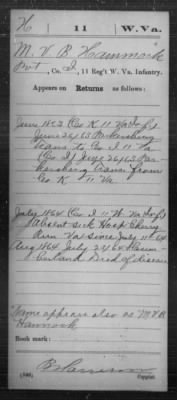 H 11 W. Va.
M. V. B. Hammock
Pvt, Co. I, 11 Reg't W. Va. Infantry.
Appears on Returns as follows:
June 1863 Co. K 11 Va
June 26/63 Parkersburg
trans to Co. I 11 Va
(Co. I) June 26/63 Par
kersburg Trans. from
Co. K 11 Va.
July 1864 Co. I 11 W. Va
Absent sick Hosp.
Va since July 11 64
Aug 1864 July 24/64 Cum
berland Died of disease
Name appears also as M V B
Hannock
Book mark:
Copyist.